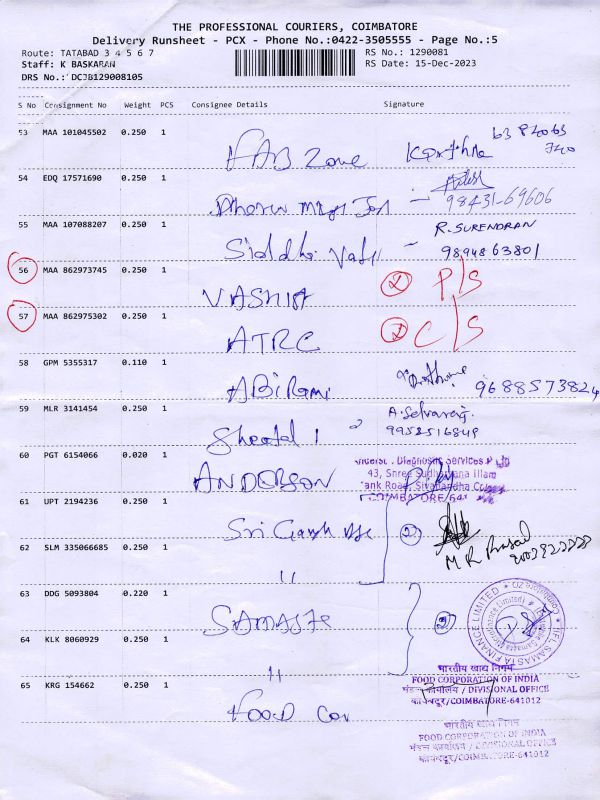 THE PROFESSIONAL COURIERS, COIMBATORE
Delivery Runsheet - PCX - Phone No.:0422-3505555 - Page No.:5
Route: TATABAD 3 4 5 6 7 RS No.: 1290081
Staff: K BASKARAN RS Date: 15-Dec-2023
DRS No.: DCJB129008105
S No Consignment No Weight PCS Consignee Details Signature
53 MAA 101045502 0.250 1 FAB Zone
54 EDQ 17571690 0.250 1
98431-69606
55 MAA 107088207 0.250 1 Siddhi R. SURENDRAN
9894863801
56 MAA 862973745 0.250 1 VASHIST P/S
57 MAA 862975302 0.250 1 ATRC C/S
58 GPM 5355317 0.110 1 ABirami 9688573824
59 MLR 3141454 0.250 1 Sheetal A. Selvaraj
9952516849
60 PGT 6154066 0.020 1 ANDERSON Diagnostic Services P
43, Shree Sudharsana Illam
Tank Road, Sivanandha Colony
COIMBATORE/641
61 UPT 2194236 0.250 1 Sri Ganesh 2
62 SLM 335066685 0.250 1 " M R Prasad
63 DDG 5093804 0.220 1 SAMASTA IIFL SAMASTA FINANCE LIMITED
64 KLK 8060929 0.250 1 "
भारतीय खाद्य निगम
FOOD CORPORATION OF INDIA
65 KRG 154662 0.250 1 FOOD Cor मंडल कार्यालय / DIVISIONAL OFFICE
कोयंबटूर/COIMBATORE-641012
भारतीय खाद्य निगम
FOOD CORPORATION OF INDIA
मंडल कार्यालय / DIVISIONAL OFFICE
कोयंबटूर/COIMBATORE-641012